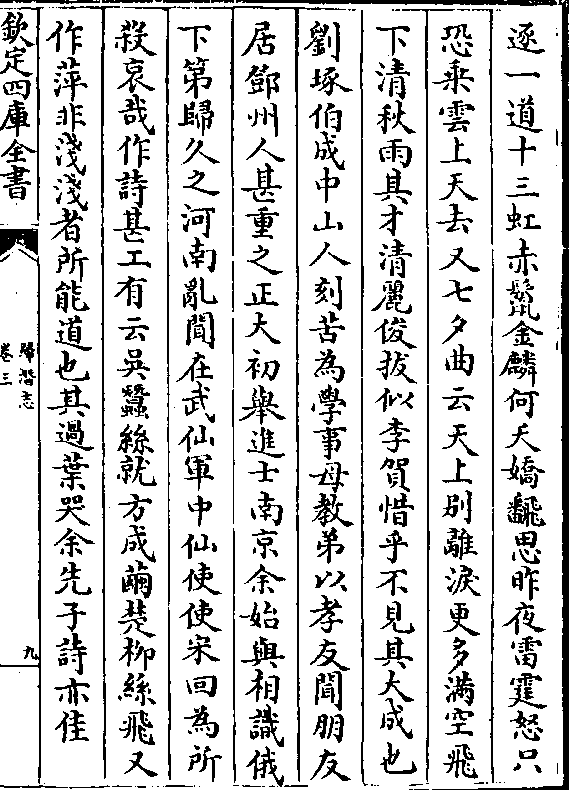 逐一道十三虹赤鬛金麟何夭嬌翻思昨夜雷霆怒只
恐乗雲上天去又七夕曲云天上别離淚更多滿空飛
下清秋雨其才清麗俊拔似李賀惜乎不見其大成也
劉琢伯成中山人刻苦為學事母教弟以孝友聞朋友
居鄧州人甚重之正大初舉進士南京余始與相識俄
下第歸久之河南亂聞在武仙軍中仙使使宋回為所
殺哀哉作詩甚工有云吳蠶絲就方成繭楚柳絲飛又
作萍非淺淺者所能道也其過葉哭余先子詩亦佳
欽定四庫全書
歸潛志
卷三
九